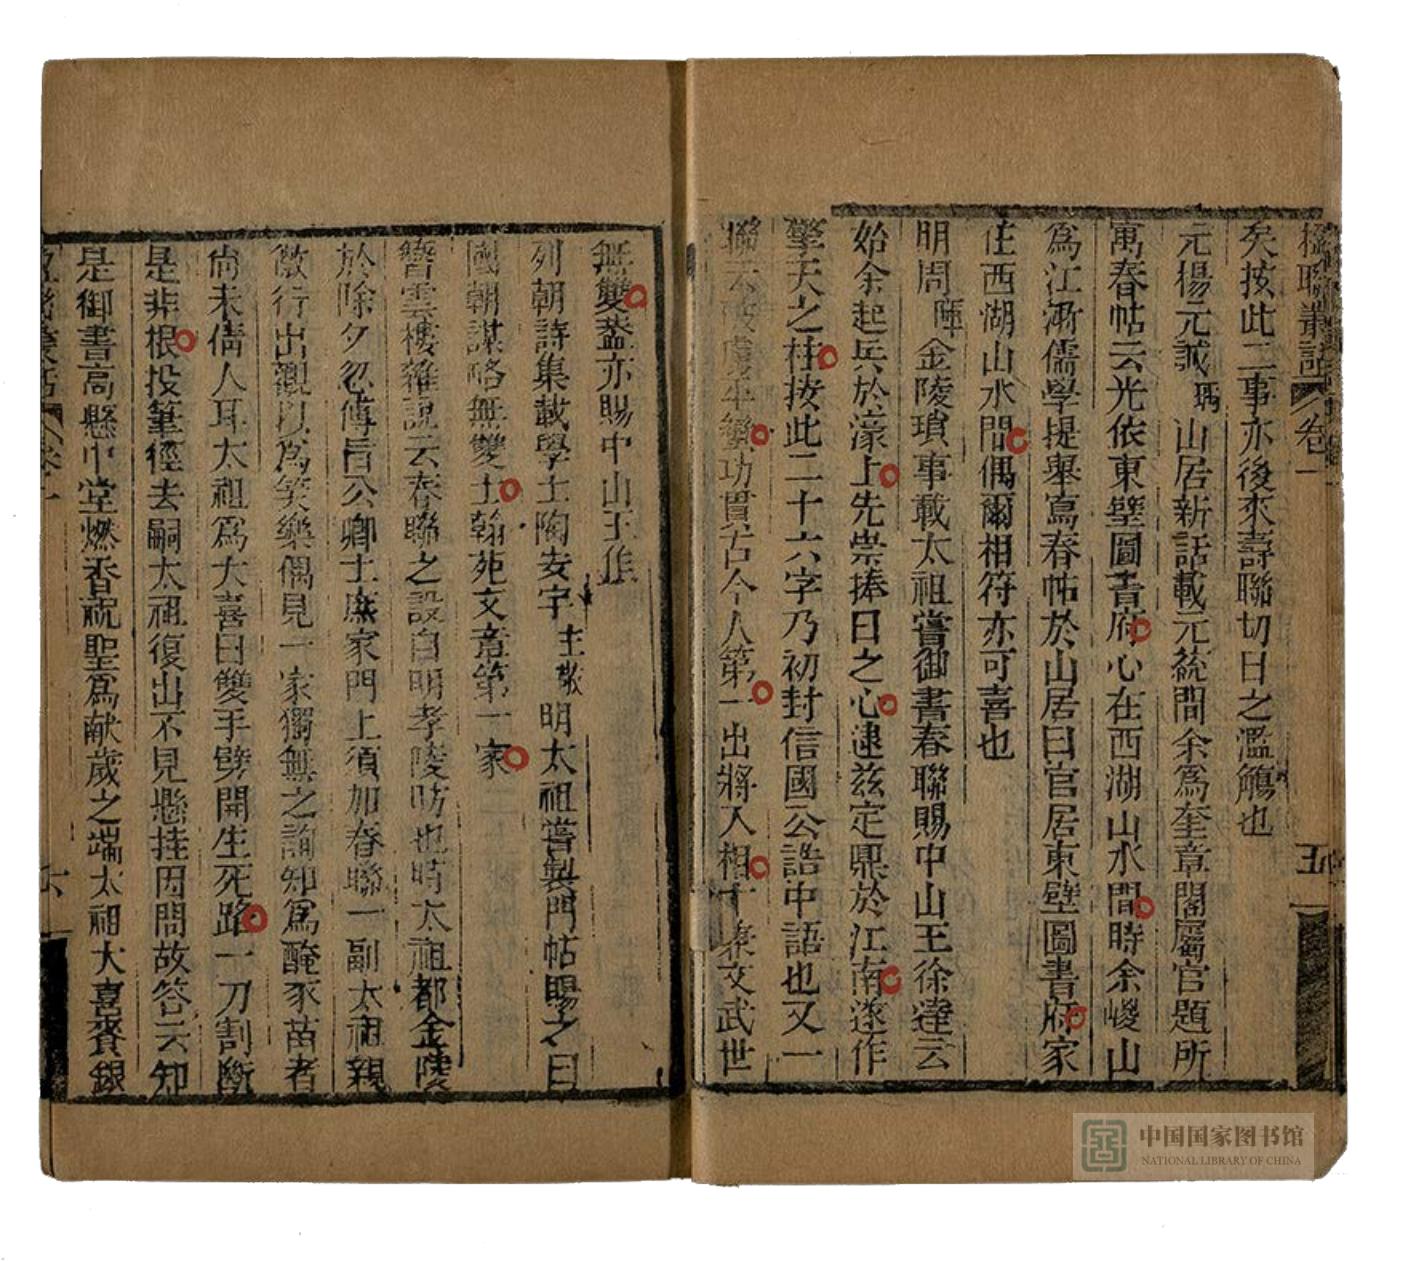 楹聯叢話 卷一 五
矣按此二事亦後來壽聯切日之濫觴也
元楊元誠瑀山居新話載元統間余爲奎章閣屬官題所
寓春帖云光依東壁圖書府心在西湖山水間時余峻山
爲江浙儒學提舉寫春帖於山居曰官居東壁圖書府家
住西湖山水間偶爾相符亦可喜也
明周暉金陵瑣事載太祖嘗御書春聯賜中山王徐達云
始余起兵於濠上先崇捧日之心逮玆定鼎於江南遂作
擎天之柱按此二十六字乃初封信國公誥中語也又一
聯云破虜平蠻功貫古今人第一出將入相才兼文武世
無雙葢亦賜中山王作
列朝詩集載學士陶安字主敬明太祖嘗製門帖賜之曰
國朝謀略無雙士翰苑文章第一家
簪雲樓雜說云春聯之設自明孝陵昉也時太祖都金陵
於除夕忽傳旨公卿士庶家門上須加春聯一副太祖親
微行出觀以爲笑樂偶見一家獨無之詢知爲醃豕苗者
尙未倩人耳太祖爲大喜曰雙手劈開生死路一刀割斷
是非根投筆徑去嗣太祖復出不見懸挂因問故答云知
是御書高懸中堂燃香祝聖爲献歲之端太祖大喜賚銀
六
中国国家图书馆
NATIONAL LIBRARY OF CHINA